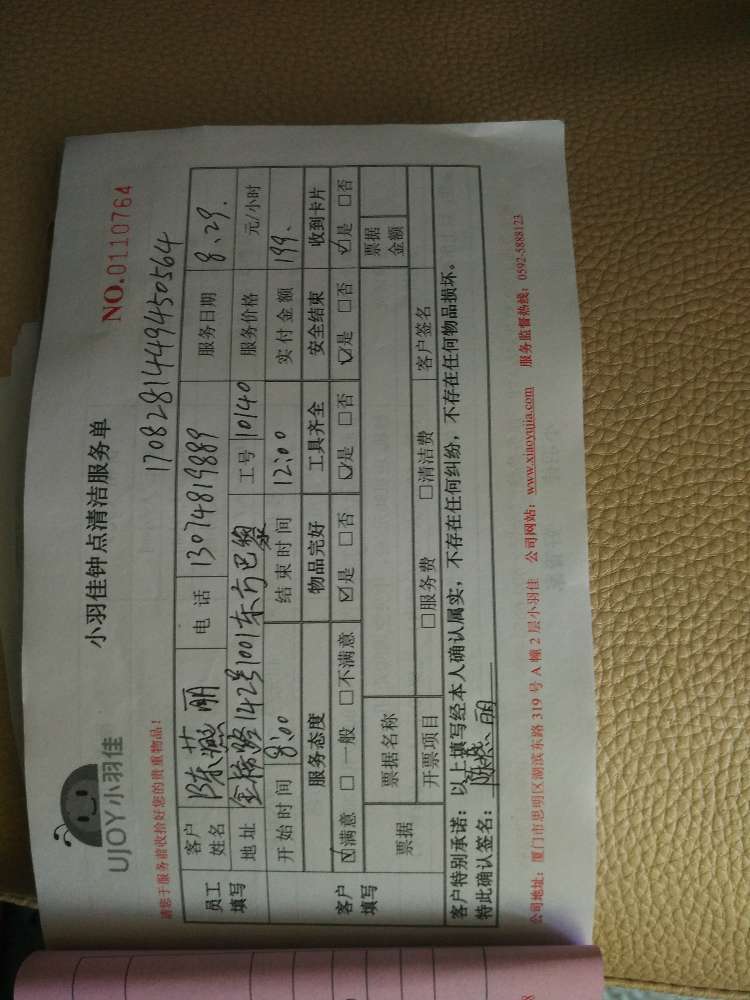 UJOY小羽佳
小羽佳钟点清洁服务单
NO.0110764
170828144949450564
请您于服务前收拾好您的贵重物品!
员工填写
客户姓名 陈燕丽 电话 13074819889 服务日期 8、29.
地址 金榜路142号1001东方巴黎 工号 10140 服务价格 元/小时
开始时间 8:00 结束时间 12:00 实付金额 199、
客户填写
服务态度 物品完好 工具齐全 安全结束 收到卡片
☑满意 □一般 □不满意 ☑是 □否 ☑是 □否 ☑是 □否 ☑是 □否
票据 票据名称 票据金额
开票项目 □服务费 □清洁费 客户签名
客户特别承诺:以上填写经本人确认属实,不存在任何纠纷,不存在任何物品损坏。
特此确认签名:陈燕丽
公司地址:厦门市思明区湖滨东路319号A幢2层小羽佳 公司网站:www.xiaoyujia.com 服务监督热线:0592-5888123